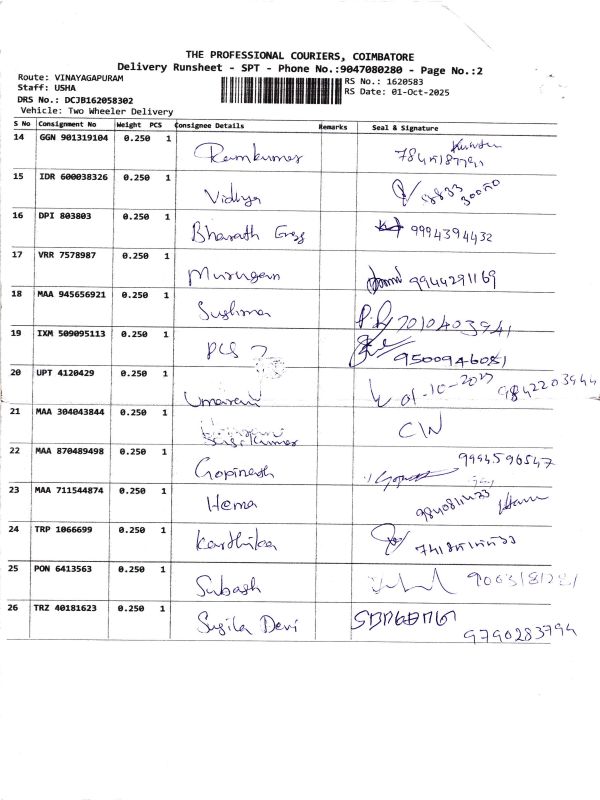 THE PROFESSIONAL COURIERS, COIMBATORE
Delivery Runsheet - SPT - Phone No.:9047080280 - Page No.:2
Route: VINAYAGAPURAM
Staff: USHA
DRS No.: DCJB162058302
Vehicle: Two Wheeler Delivery
RS No.: 1620583
RS Date: 01-Oct-2025
S No Consignment No Weight PCS Consignee Details Remarks Seal & Signature
14 GGN 901319104 0.250 1 Ramkumar
15 IDR 600038326 0.250 1 Vidhya
16 DPI 803803 0.250 1 Bharath 9994394432
17 VRR 7578987 0.250 1 Murugan 9944291169
18 MAA 945656921 0.250 1 Sushma 7010403941
19 IXM 509095113 0.250 1 PCS 9500946081
20 UPT 4120429 0.250 1 Umarani 01-10-2025 9842203944
21 MAA 304043844 0.250 1 Sasikumar C/N
22 MAA 870489498 0.250 1 Gopinath 9994596547
23 MAA 711544874 0.250 1 Hema
24 TRP 1066699 0.250 1 Karthika
25 PON 6413563 0.250 1 Subash
26 TRZ 40181623 0.250 1 Sugila Devi 9790283794